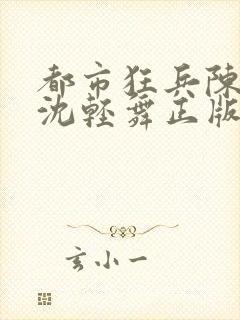 都市狂兵陳
沈輕舞正版
玄小一